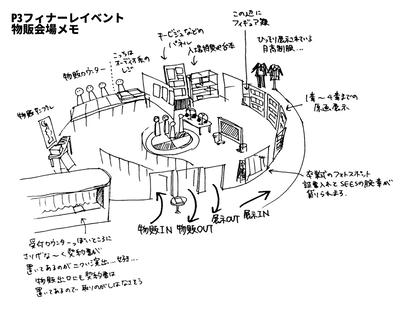 P3フィナーレイベント
物販会場メモ
この辺に
フィギュア類
キービジュなどの
パネル
入場特典や台本
ひっそり展示されている
月高制服…
こっちは
オーディオ系の
レジ
物販カウンター
物販サンプル
1章〜4章までの
原画展示
卒業式のフォトスポット
証書入れとSEESの腕章が
借りられます。
物販IN
物販OUT
展示OUT
展示IN
受付カウンターっぽいところに
さりげな〜く契約書が
置いてあるのがニクい演出…
物販出口にも契約書は
置いてあるので取りのがしはなさそう